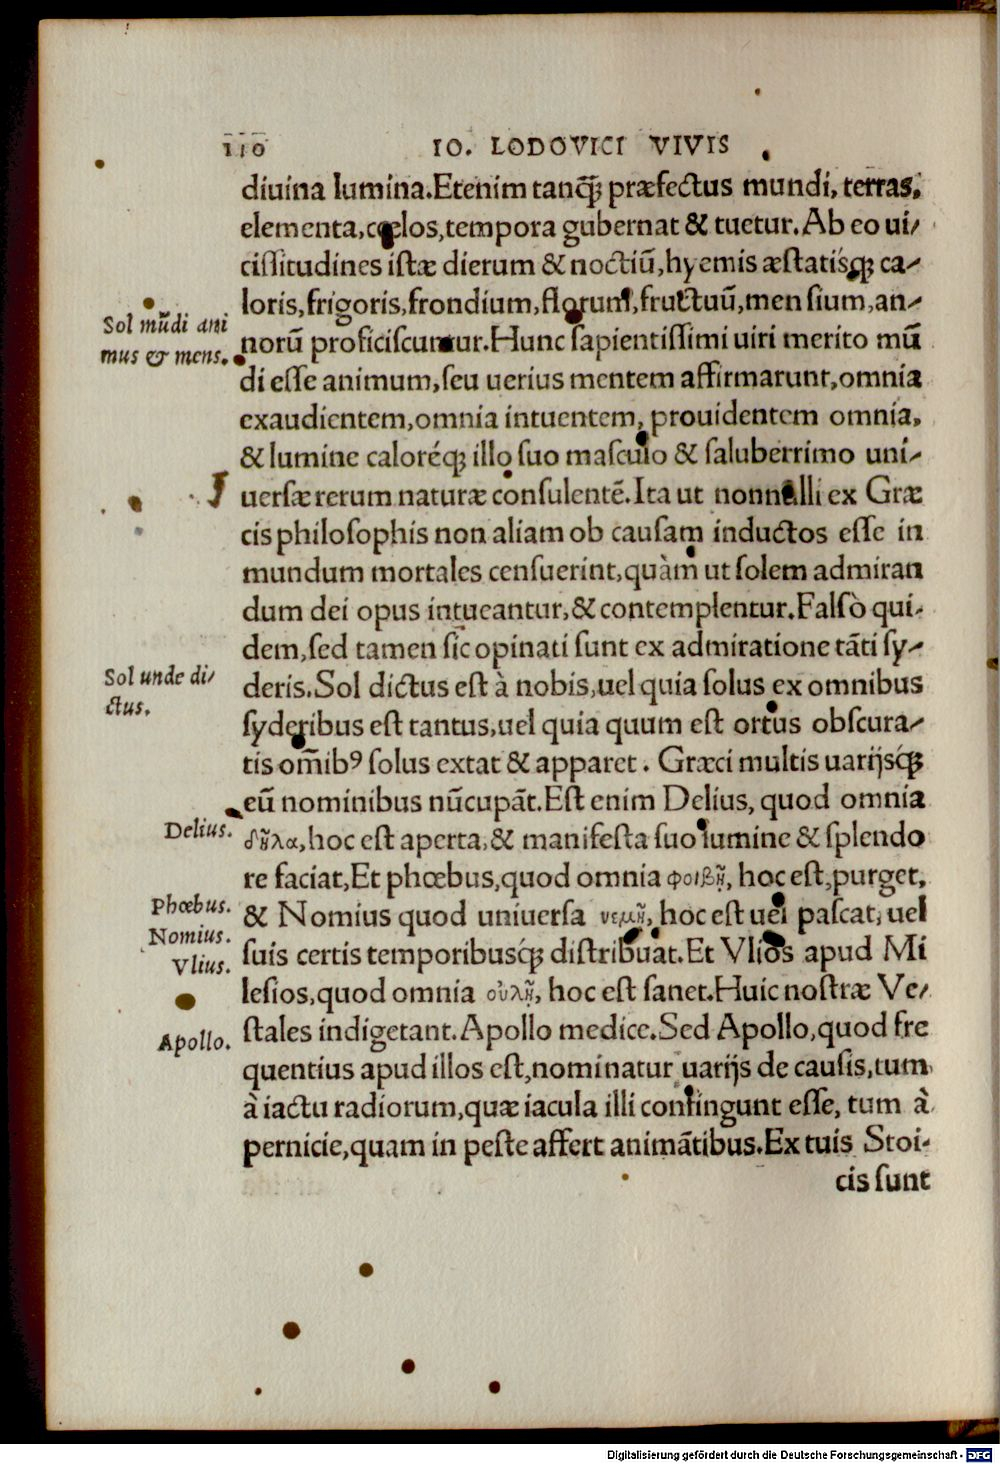 110 IO. LODOVICI VIVIS
diuina lumina.Etenim tanꝗ̃ præfectus mundi, terras,
elementa,cœlos,tempora gubernat & tuetur.Ab eo ui/
cissitudines istæ dierum & noctiũ,hyemis æstatisq́ꝫ ca/
loris,frigoris,frondium,florum,fructuũ,mensium,an/
Sol mũdi ani
mus & mens.
norũ proficiscuntur.Hunc sapientissimi uiri merito mũ
di esse animum,seu uerius mentem affirmarunt,omnia
exaudientem,omnia intuentem, prouidentem omnia,
& lumine caloréqꝫ illo suo masculo & saluberrimo uni/
uersæ rerum naturæ consulentẽ.Ita ut nonnulli ex Græ
cis philosophis non aliam ob causam inductos esse in
mundum mortales censuerint,quàm ut solem admiran
dum dei opus intueantur,& contemplentur.Falsò qui-
dem,sed tamen sic opinati sunt ex admiratione tãti sy/
Sol unde di/
ctus.
deris.Sol dictus est à nobis,uel quia solus ex omnibus
syderibus est tantus,uel quia quum est ortus obscura/
tis om̃ibꝰ solus extat & apparet. Græci multis uarijsq́ꝫ
eũ nominibus nũcupãt.Est enim Delius, quod omnia
Delius.
δῆλα,hoc est aperta,& manifesta suo lumine & splendo
re faciat,Et phœbus,quod omnia φοιβῇ, hoc est,purget,
Phœbus.
& Nomius quod uniuersa νεμῇ, hoc est uel pascat, uel
Nomius.
suis certis temporibusq́ꝫ distribuat.Et Vlios apud Mi
Vlius.
lesios,quod omnia οὐλῇ, hoc est sanet.Huic nostræ Ve/
stales indigetant.Apollo medice.Sed Apollo,quod fre
Apollo.
quentius apud illos est,nominatur uarijs de causis,tum
à iactu radiorum,quæ iacula illi contingunt esse, tum à
pernicie,quam in peste affert animãtibus.Ex tuis Stoi-
cis sunt
Digitalisierung gefördert durch die Deutsche Forschungsgemeinschaft - DFG